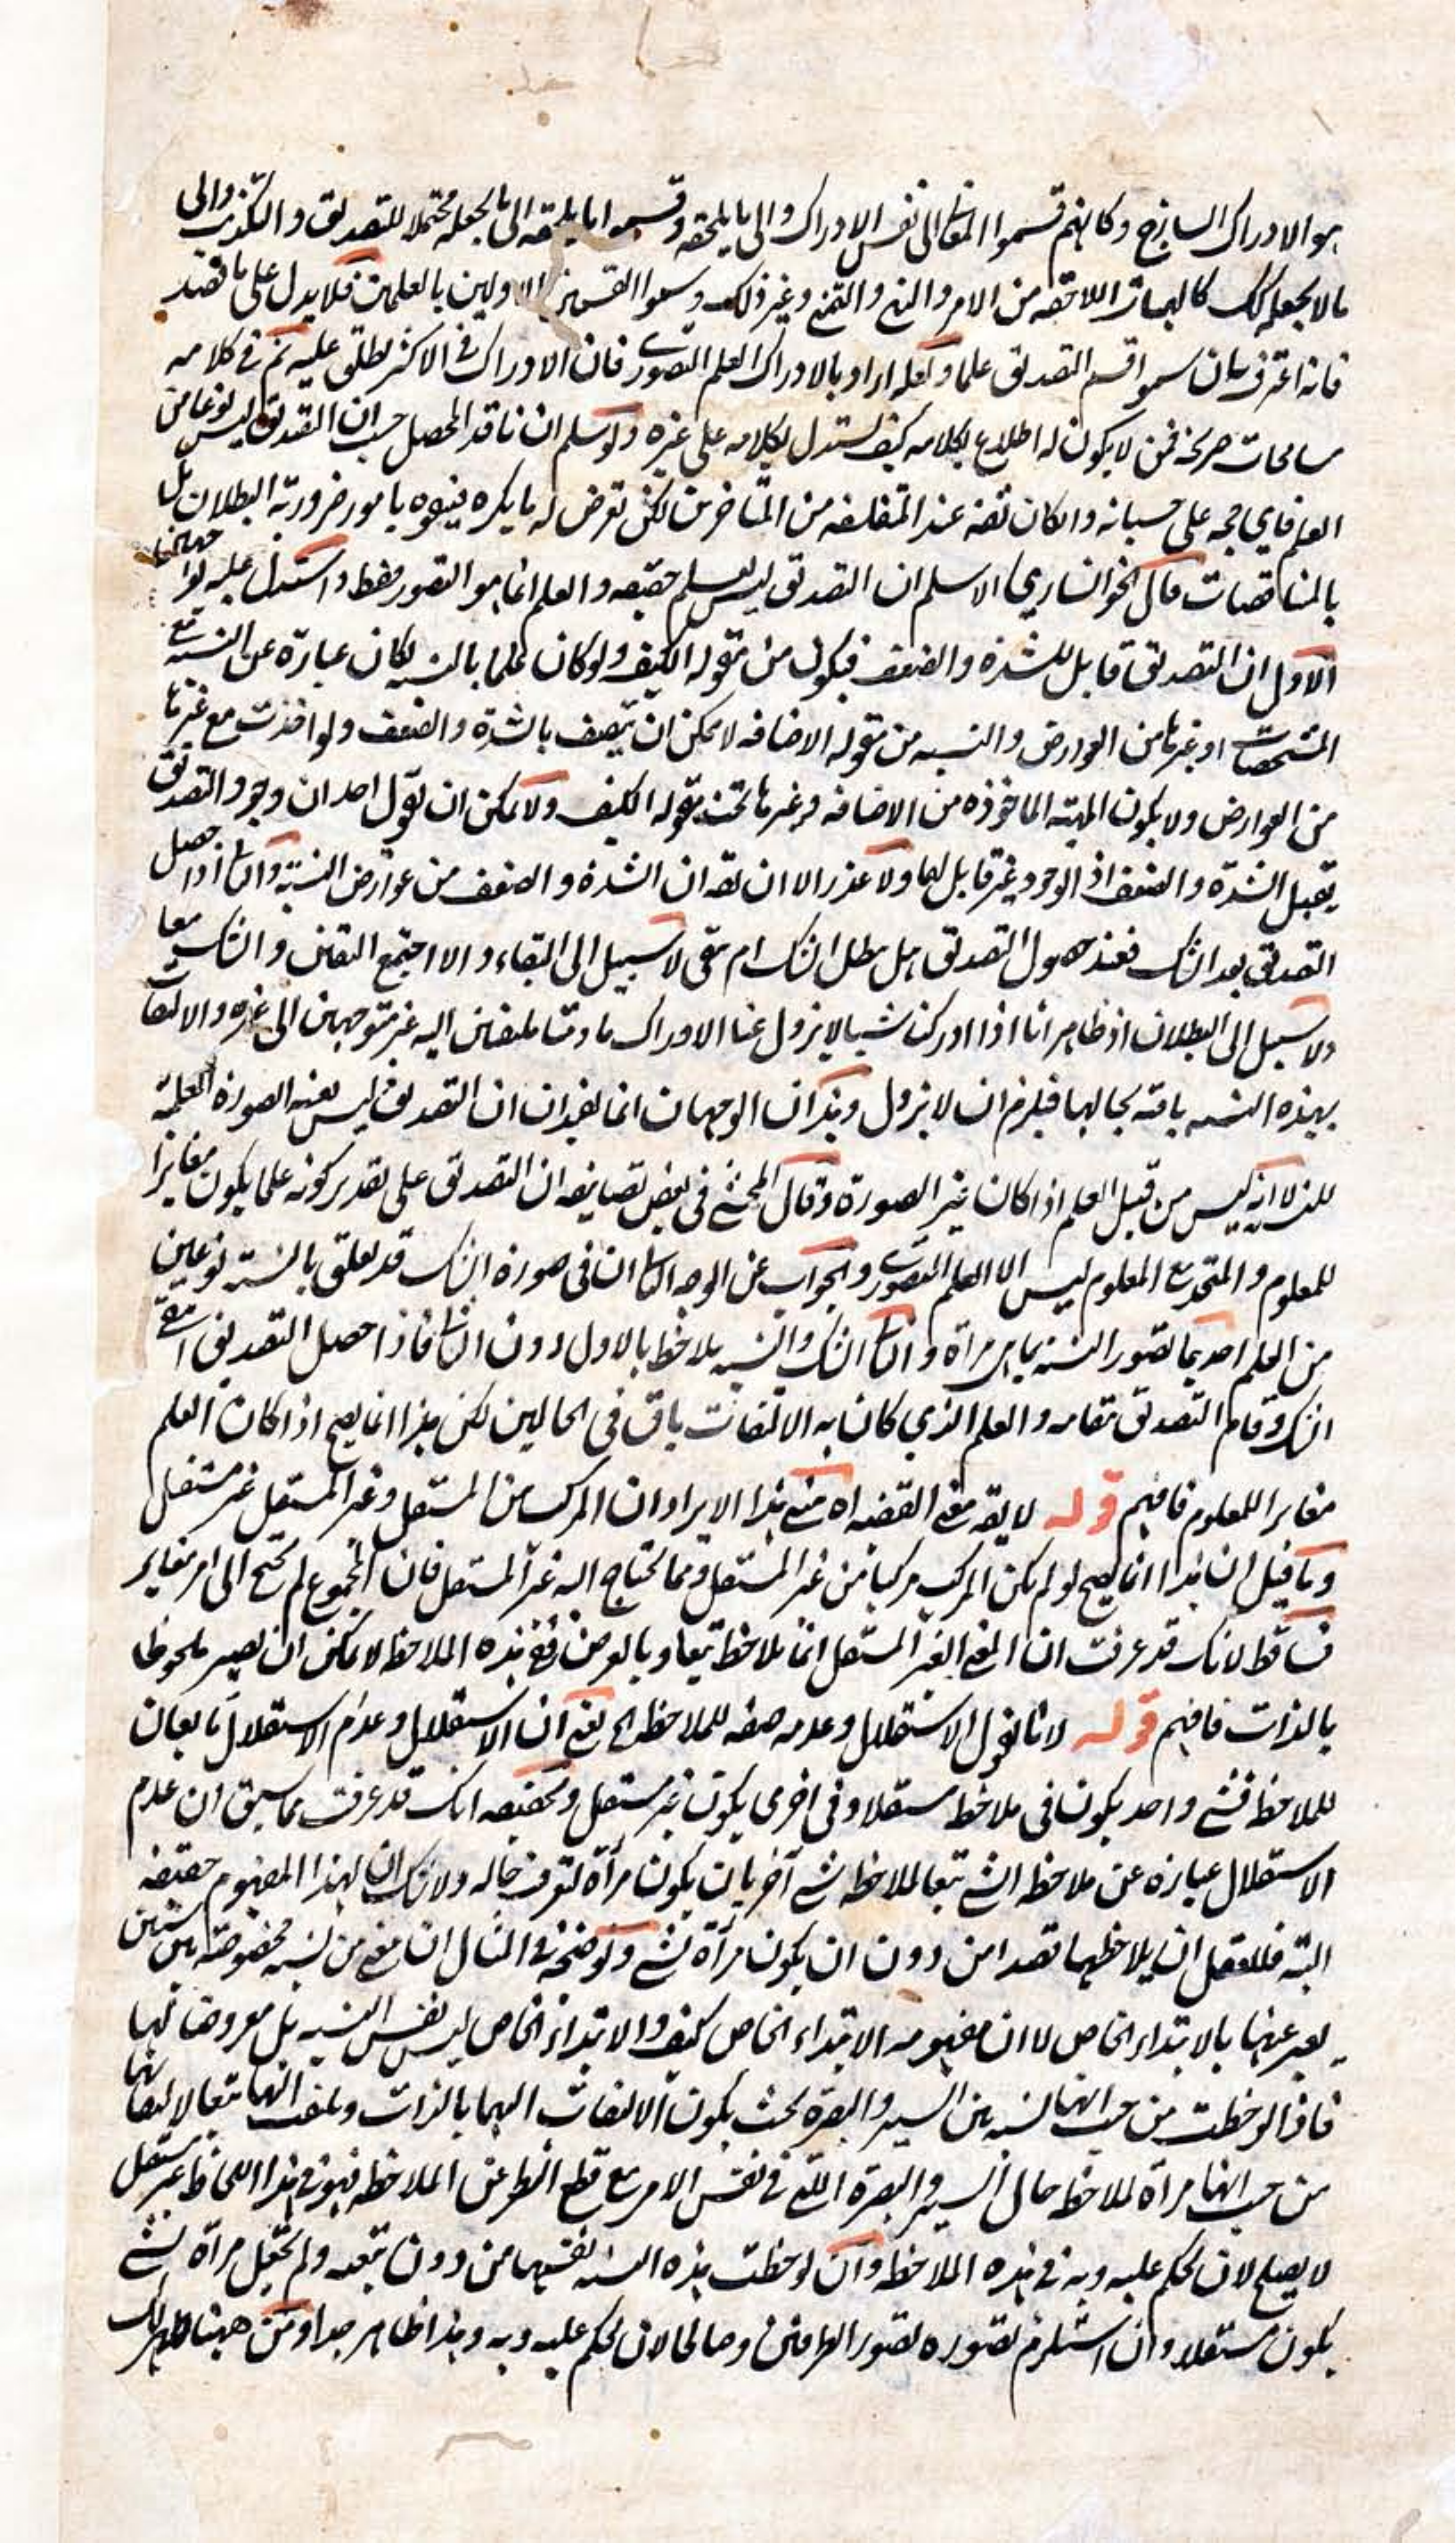 هو الادراك الساذج وكانهم قسموا المعانى الى نفس الادراك والى ما يلحقه وقسموا ما يلحقه الى ما يجعله محتملا للتصديق والتكذيب والى
ما لا يجعله كك كالهيات اللاحقه من الامر والنهى والتمنى وغير ذلك وسموا القسمين الاولين بالعلمين فلا يدل على ما قصد
فانه اعترف بان سموا قسم التصديق علما ولعله اراد بالادراك العلم التصورى فان الادراك فى الاكثر يطلق عليه ثم فى كلامه
مسامحات صريحة فمن لا يكون له اطلاع بكلامه كيف يستدل بكلامه على غيره ولو سلم ان ناقد المحصل حسب ان التصديق ليس نوعا من
العلم فاي حجه على حسبانه وان كان ثقه عند المتفلسفه من المتاخرين لكن تعرض له ما يكره فيفوه بامور ضرورية البطلان بل
بالمناقضات قال الخوانساري الاسلم ان التصديق ليس بعلم حقيقه والعلم انما هو التصور فقط واستدل عليه بوجهين
الاول ان التصديق قابل للشدة والضعف فيكون من مقوله الكيف ولو كان علما بالنسبه لكان عبارة عن النسبة مع
المشخصات او غيرها من العوارض والنسبه من مقوله الاضافه لا يمكن ان يتصف بالشدة والضعف ولو اخذت مع غيرها
من العوارض ولا يكون المهية الماخوذه من الاضافه وغيرها تحت مقوله الكيف ولا يمكن ان يقول احد ان وجود التصديق
يقبل الشدة والضعف اذ الوجود غير قابل لهما ولا عذر الا ان يقه ان الشدة والضعف من عوارض النسبة والثانى اذا حصل
التصديق بعد الشك فعند حصول التصديق هل بطل الشك ام بقى لا سبيل الى البقاء والا اجتمع اليقين والشك معا
ولا سبيل الى البطلان اذ ظاهر انا اذا ادركنا شيا لا يزول عنا الادراك ما دمنا ملتفتين اليه غير متوجهين الى غيره والالتفات
بهذه النسبه باقية بحالها فيلزم ان لا يزول وهذان الوجهان انما يفيدان ان التصديق ليس نفس الصورة العلمية
للنسبة لا انه ليس من قبيل العلم اذا كان غير الصورة وقال المحشى فى بعض تصانيفه ان التصديق على تقدير كونه علما يكون مغايرا
للمعلوم والمتحد مع المعلوم ليس الا العلم التصورى والجواب عن الوجه الثانى ان فى صورة الشك قد يعلق بالنسبة نوعين
من العلم احدهما تصور النسبة بما هى مرآة والثانى الشك والنسبه يلاحظ بالاول دون الثانى فاذا حصل التصديق انتفى
الشك وقام التصديق مقامه والعلم الذي كان به الالتفات باق فى الحالين لكن هذا انما يصح اذا كان العلم
مغايرا للمعلوم فافهم قوله لا يقه معنى القضيه اه مبنى هذا الايراد ان المركب من المستقل وغير المستقل غير مستقل
وما قيل ان هذا انما يصح لو لم يكن المركب مركبا من غير المستقل ومما يحتاج اليه غير المستقل فان المجموع لم يحتج الى امر مغاير
فساقط لانك قد عرفت ان المعنى الغير المستقل انما يلاحظ تبعا وبالعرض ففى هذه الملاحظه لا يمكن ان يصير ملحوظا
بالذات فافهم قوله لانا نقول الاستقلال وعدمه صفه للملاحظه الخ يعنى ان الاستقلال وعدم الاستقلال تابعان
للملاحظه فشئ واحد يكون فى ملاحظه مستقلا وفى اخرى يكون غير مستقل وتحقيقه انك قد عرفت مما سبق ان عدم
الاستقلال عبارة عن ملاحظه الشئ تبعا لملاحظه شئ آخر بان يكون مرآة لتعرف حاله ولا شك ان لهذا المفهوم حقيقه
البته فللعقل ان يلاحظها قصدا من دون ان يكون مرآة لشئ وتوضيحه فى المثال ان معنى من نسبه مخصوصة بين شيئين
يعبر عنها بالابتداء الخاص لا ان مفهومه الابتداء الخاص كيف والابتداء الخاص ليس نفس النسبه بل معروضا لها
فاذا لوحظت من حيث انها نسبه بين السير والبصرة بحيث يكون الالتفات اليهما بالذات ويلتفت اليها تبعا لالتفاتهما
من حيث انها مرآة لملاحظه حال السير والبصرة اللتى فى نفس الامر مع قطع النظر عن الملاحظه فهو فى هذا اللحاظ غير مستقل
لا يصلح لان يحكم عليه وبه فى هذه الملاحظه وان لوحظت هذه النسبه نفسها من دون تبعيه ولم يجعل مرآة لشئ
يكون مستقلا وان استلزم تصوره تصور الطرفين وصالحا لان يحكم عليه وبه وهذا ظاهر جدا ومن ههنا ظهر لك